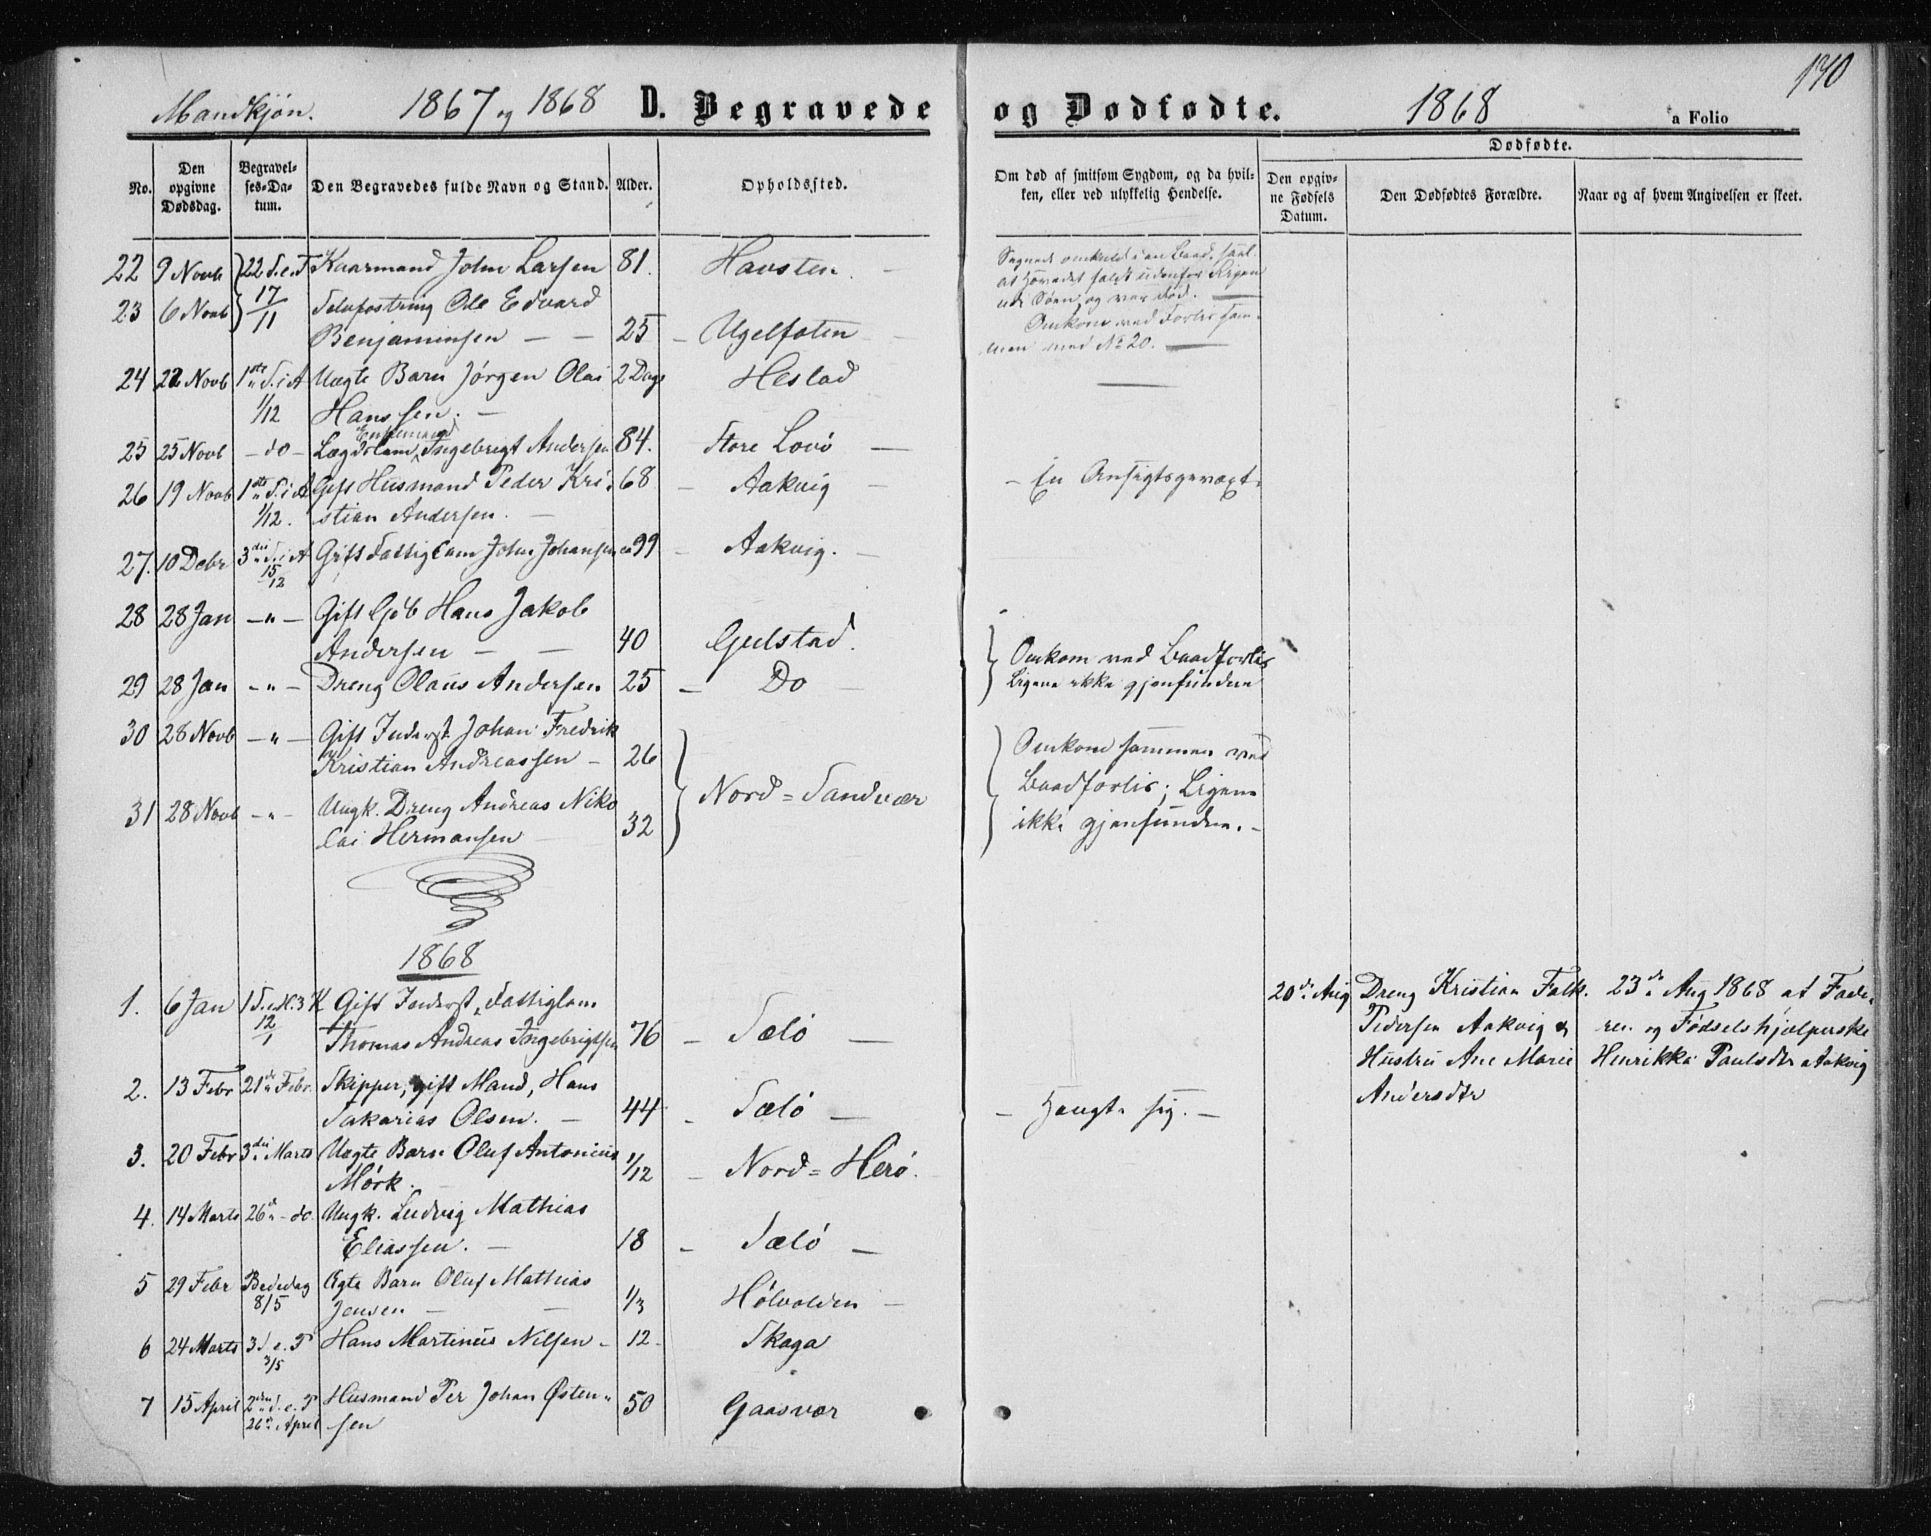 170
Mandkjøn. 1867 og 1868 D. Begravede og Dødfødte. 1868 a Folio
No.
Den opgivne Dødsdag.
Begravelses-Datum.
Den Begravedes fulde Navn og Stand.
Alder.
Opholdssted.
Om død af smitsom Sygdom, og da hvilken, eller ved ulykkelig Hendelse.
Dødfødte.
Den opgivne Fødsels Datum.
Den Dødfødtes Forældre.
Naar og af hvem Angivelsen er skeet.
22 9 Novb 22 S. e. T Kaarmand John Larsen 81. Havsten.
at Hovedet faldt udenfor
Søen, og var død.
23 6 Novb 17/11 Ole Edvard
Benjaminsen 25 Ugelfoten
Omkom ved Forlis sam-
men med No 20.
24 22 Novb 1ste S. i A Uægte Barn Jørgen Olai 2 Dage Hestad
1/12 Hanssen.
Enkemand
25 25 Novb do Lægdslam, Ingebrigt Andersen 84. Store Lovö
26 19 Novb 1ste S. i A Gift Husmand Peder Kri- 68 Aakvig En Ansigtsgevæxt.
1/12. stian Andersen.
27. 10 Debr 3die S. i A Gift Fattiglam John Johansen 99 Aakvig.
15/12
28 28 Jan " Gift Hans Jakob
Andersen 40 Gulstad.
Omkom ved Baadforlis
29 28 Jan " Dreng Olaus Andersen 25 Do
Ligene ikke gjenfundne
30 28 Novb " Gift Inderst Johan Fredrik
Kristian Andreassen 26
Nord-Sandvær
Omkom sammen ved
Baadforlis; Ligene
ikke gjenfundne.
31 28 Novb " Ungk. Dreng Andreas Niko
lai Hermansen 32
1868
1. 6 Jan 1 S. e. H. 3 K Gift Inderst, Fattiglam
12/1 Thomas Andreas Ingebrigtsen 76 Sælö
20de Aug Dreng Kristian Falk.
Pedersen Aakvig &
Hustru Ane Marie
Andersdtr
23de Aug 1868 af Fade-
ren og Fødselshjelperske
Henrikka Paulsdtr Aakvig
2. 13 Febr 21de Febr. Skipper, gift Mand, Hans
Sakarias Olsen. 44 Sælö Hængte sig.
3. 20 Febr 3die Marts Uægte Barn Oluf Antonius
Mörk. 1/12 Nord-Herö.
4. 14 Marts 26de do. Ungk. Ludvig Mathias
Eliassen. 18 Sælö
5 29 Febr Bededag Ægte Barn Oluf Mathias
8/5 Jensen 1/3 Hölvolden
6 24 Marts 3 S. e. P Hans Martinus Nilsen 12 Skaga
3/5
7 15 April 2den S. e. P Husmand Per Johan Østen- 50 Gaasvær
26de April sen